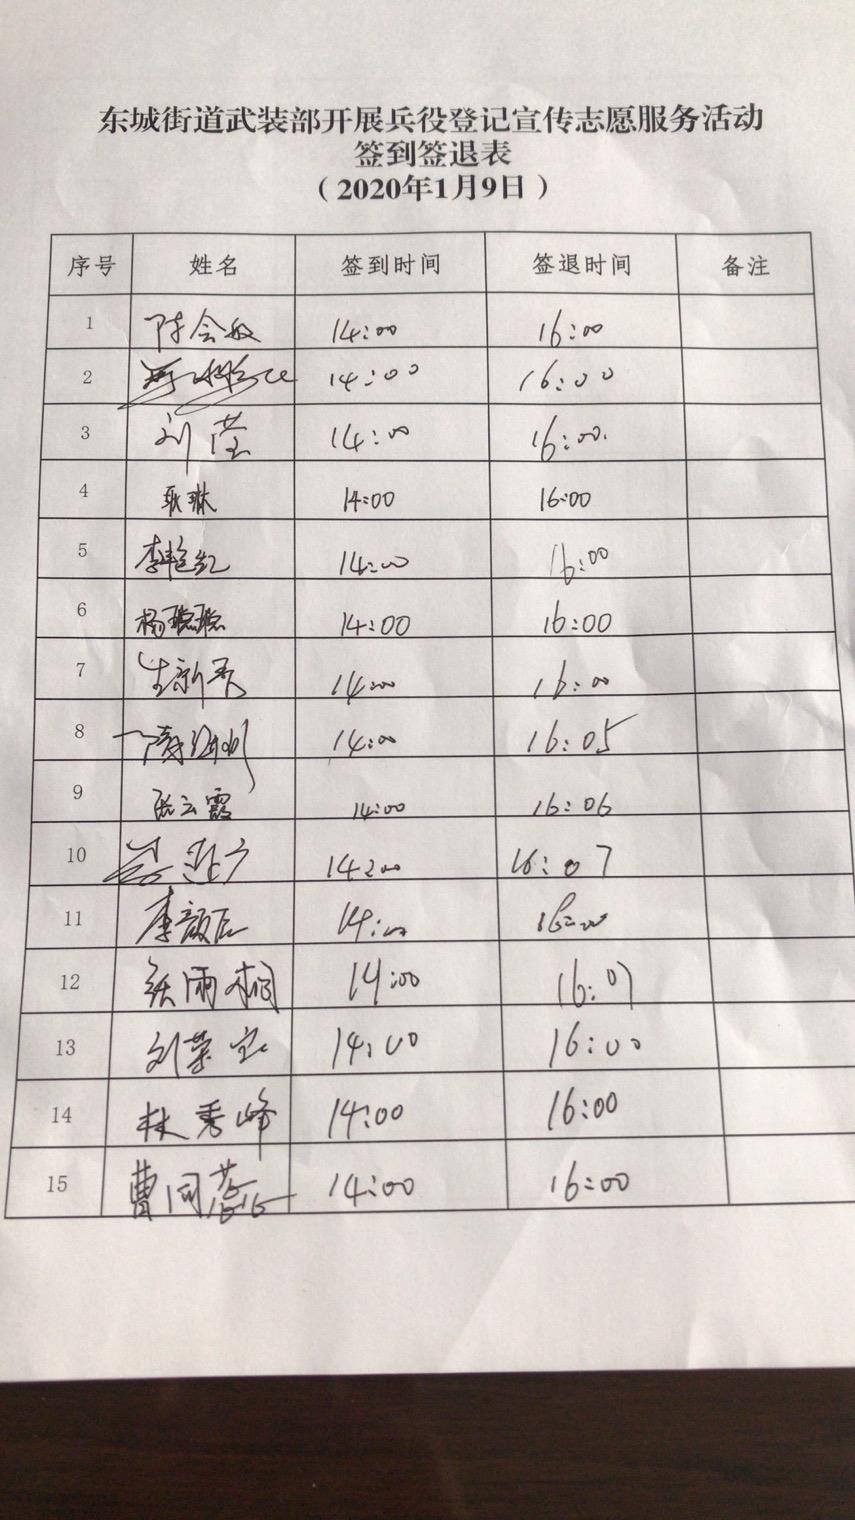 东城街道武装部开展兵役登记宣传志愿服务活动
签到签退表
（2020年1月9日）
序号 姓名 签到时间 签退时间 备注
1 陈会敏 14:00 16:00
2 14:00 16:00
3 刘莹 14:00 16:00.
4 耿琳 14:00 16:00
5 李艳红 14:00 16:00
6 杨聪聪 14:00 16:00
7 14:00 16:00
8 14:00 16:05
9 张云霞 14:00 16:06
10 14:00 16:07
11 李颜辰 14:00 16:00
12 张雨桐 14:00 16:07
13 刘荣宝 14:00 16:00
14 林秀峰 14:00 16:00
15 曹同蕊 14:00 16:00